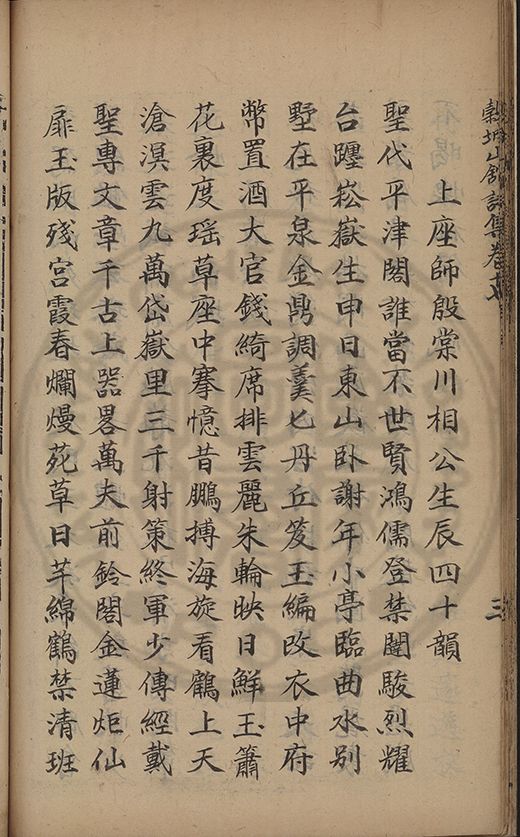 穀城山館詩集卷之
三
上座師殷棠川相公生辰四十韻
聖代平津閣誰當不世賢鴻儒登禁闥駿烈耀
台躔崧嶽生申日東山臥謝年小亭臨曲水別
墅在平泉金鼎調羹匕丹丘笈玉編改衣中府
幣置酒大官錢綺席排雲麗朱輪映日鮮玉簫
花裏度瑶草座中搴憶昔鵬搏海旋看鶴上天
滄溟雲九萬岱嶽里三千射策終軍少傳經戴
聖專文章千古上噐畧萬夫前鈴閣金蓮炬仙
扉玉版殘宮霞春爛熳苑草日芊綿鶴禁清班